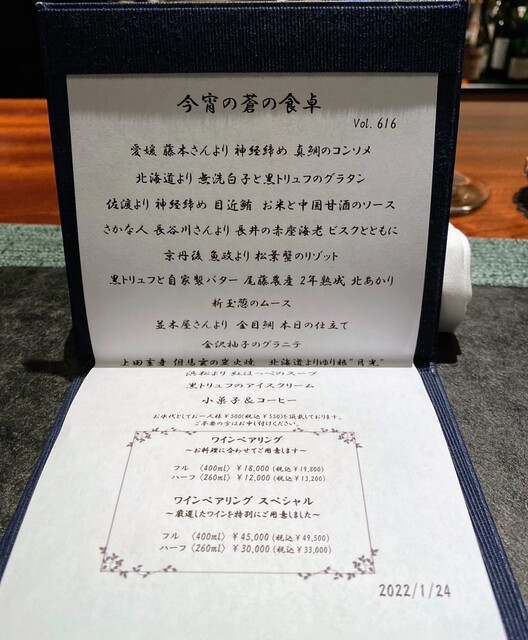 今宵の蒼の食卓
Vol. 616
愛媛 藤本さんより 神経締め 真鯛のコンソメ
北海道より 無洗白子と黒トリュフのグラタン
佐渡より 神経締め 目近鮪 お米と中国甘酒のソース
さかな人 長谷川さんより 長井の赤座海老 ビスクとともに
京丹後 魚政より 松葉蟹のリゾット
黒トリュフと自家製バター 尾藤農産 2年熟成 北あかり
新玉葱のムース
並木屋さんより 金目鯛 本日の仕立て
金沢柚子のグラニテ
上田畜産 但馬玄の炭火焼 北海道よりゆり根“月光”
浜松より 紅ほっぺのスープ
黒トリュフのアイスクリーム
小菓子&コーヒー
お水代としてお一人様¥500(税込¥550)を頂戴しております。
ご不要の方はお申し付けください。
ワインペアリング
～お料理に合わせてご用意します～
フル 〈400ml〉 ¥18,000 (税込 ¥19,800)
ハーフ 〈260ml〉 ¥12,000 (税込 ¥13,200)
ワインペアリング スペシャル
～厳選したワインを特別にご用意しました～
フル 〈400ml〉 ¥45,000 (税込 ¥49,500)
ハーフ 〈260ml〉 ¥30,000 (税込 ¥33,000)
2022/1/24